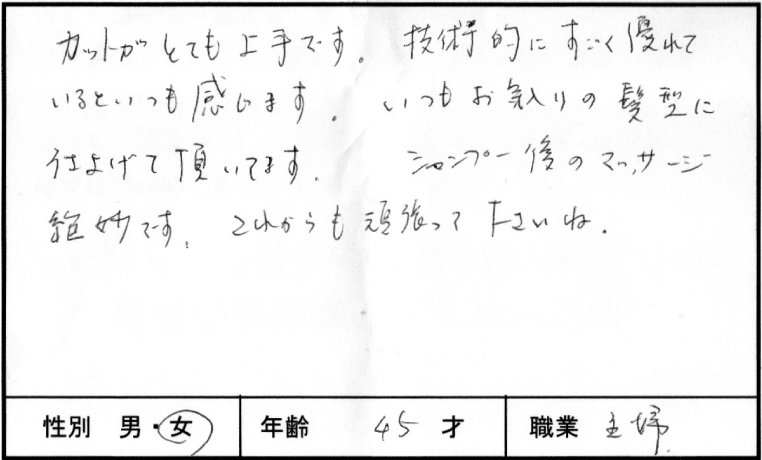 カットがとても上手です。技術的にすごく優れて
いるといつも感じます。いつもお気入りの髪型に
仕上げて頂いてます。シャンプー後のマッサージ
絶妙です。これからも頑張って下さいね。
性別 男・女 年齢 45 才 職業 主婦